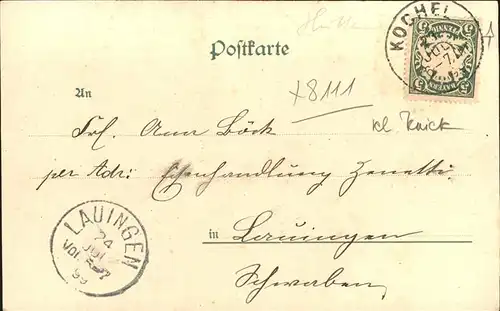 KOCHEL
BAYERN
Postkarte
+8111
An
Frl. Ann Böck
kl Knick
per Adr: Eisenhandlung Zenetti.
LAUINGEN
24
JUL
99
in Lauingen
Schwaben